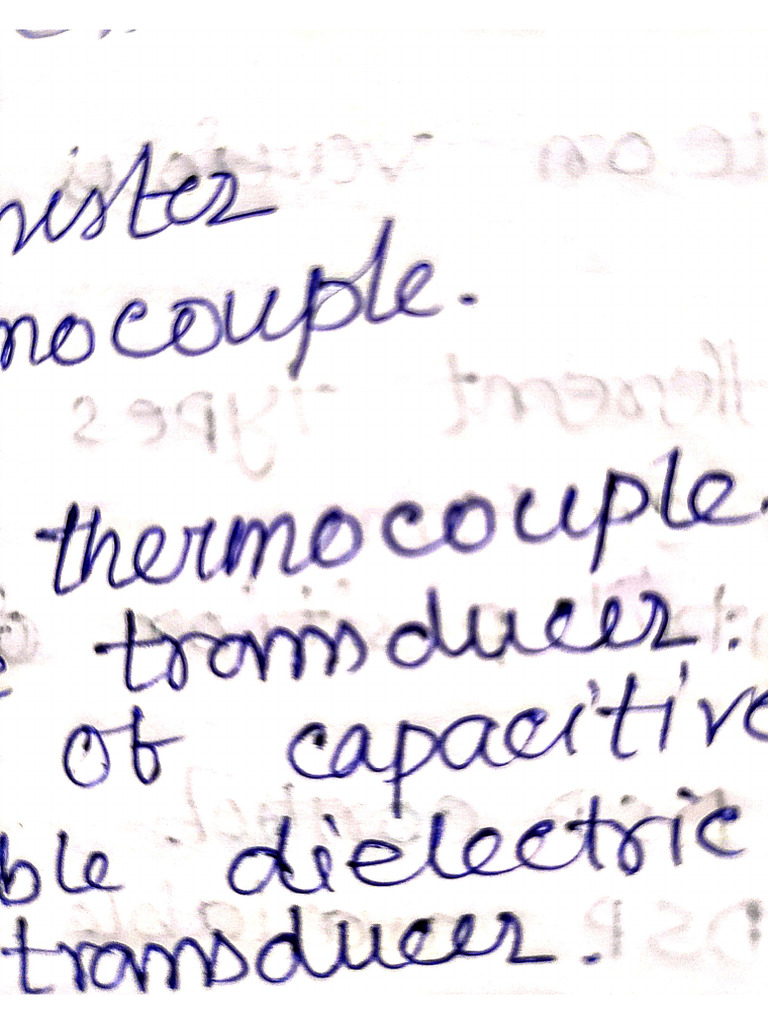 rister
mocouple.
thermocouple.
transducer.
of capacitive
ble dielectric
transducer.